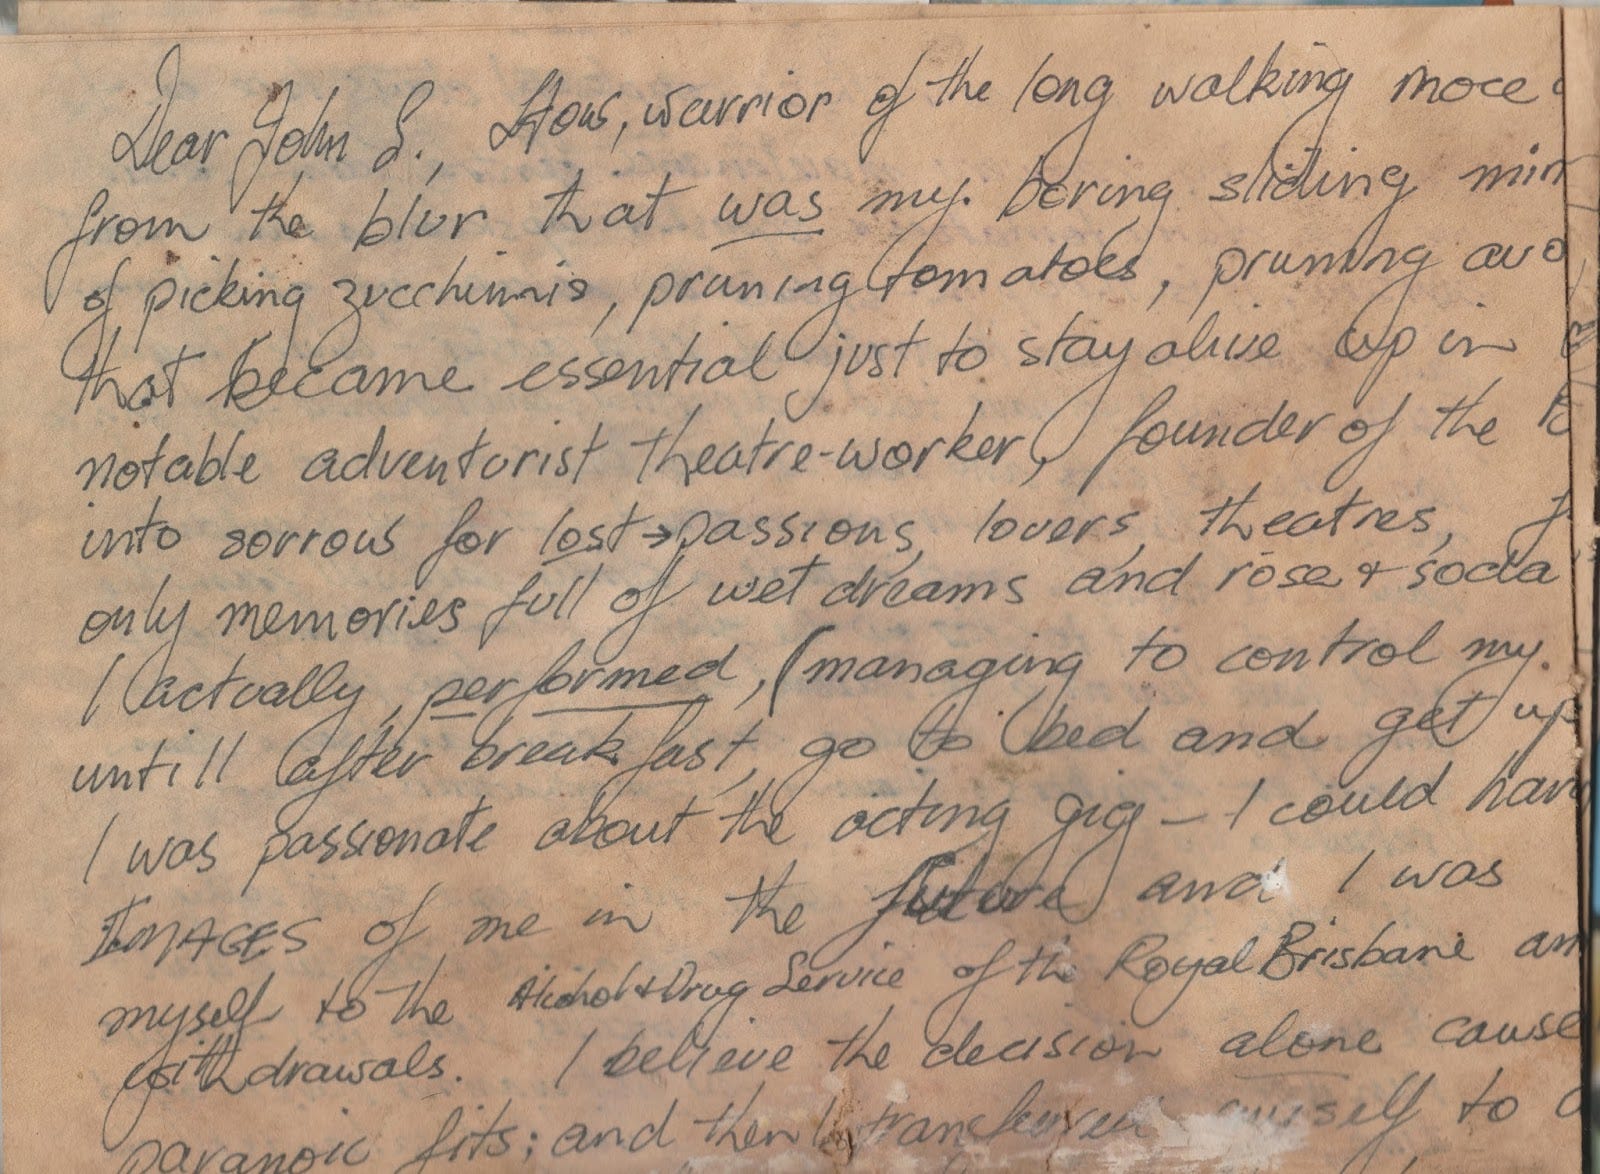 Dear John S., Hows, warrior of the long walking moce
from the blur that was my. boring sliding min
of picking zucchinnis, pruning tomatoes, pruning avo
that became essential just to stay alive up in
notable adventurist theatre-worker, founder of the
into sorrows for lost→passions, lovers, theatres,
only memories full of wet dreams and rose + soda
I actually, performed, (managing to control my.
untill after breakfast, go to bed and get up
I was passionate about the acting gig – I could hav
IMAGES of me in the future and I was
myself to the Alcohol + Drug Service of the Royal Brisbane an
withdrawals. I believe the decision alone cause
paranoic fits; and then I transferred myself to